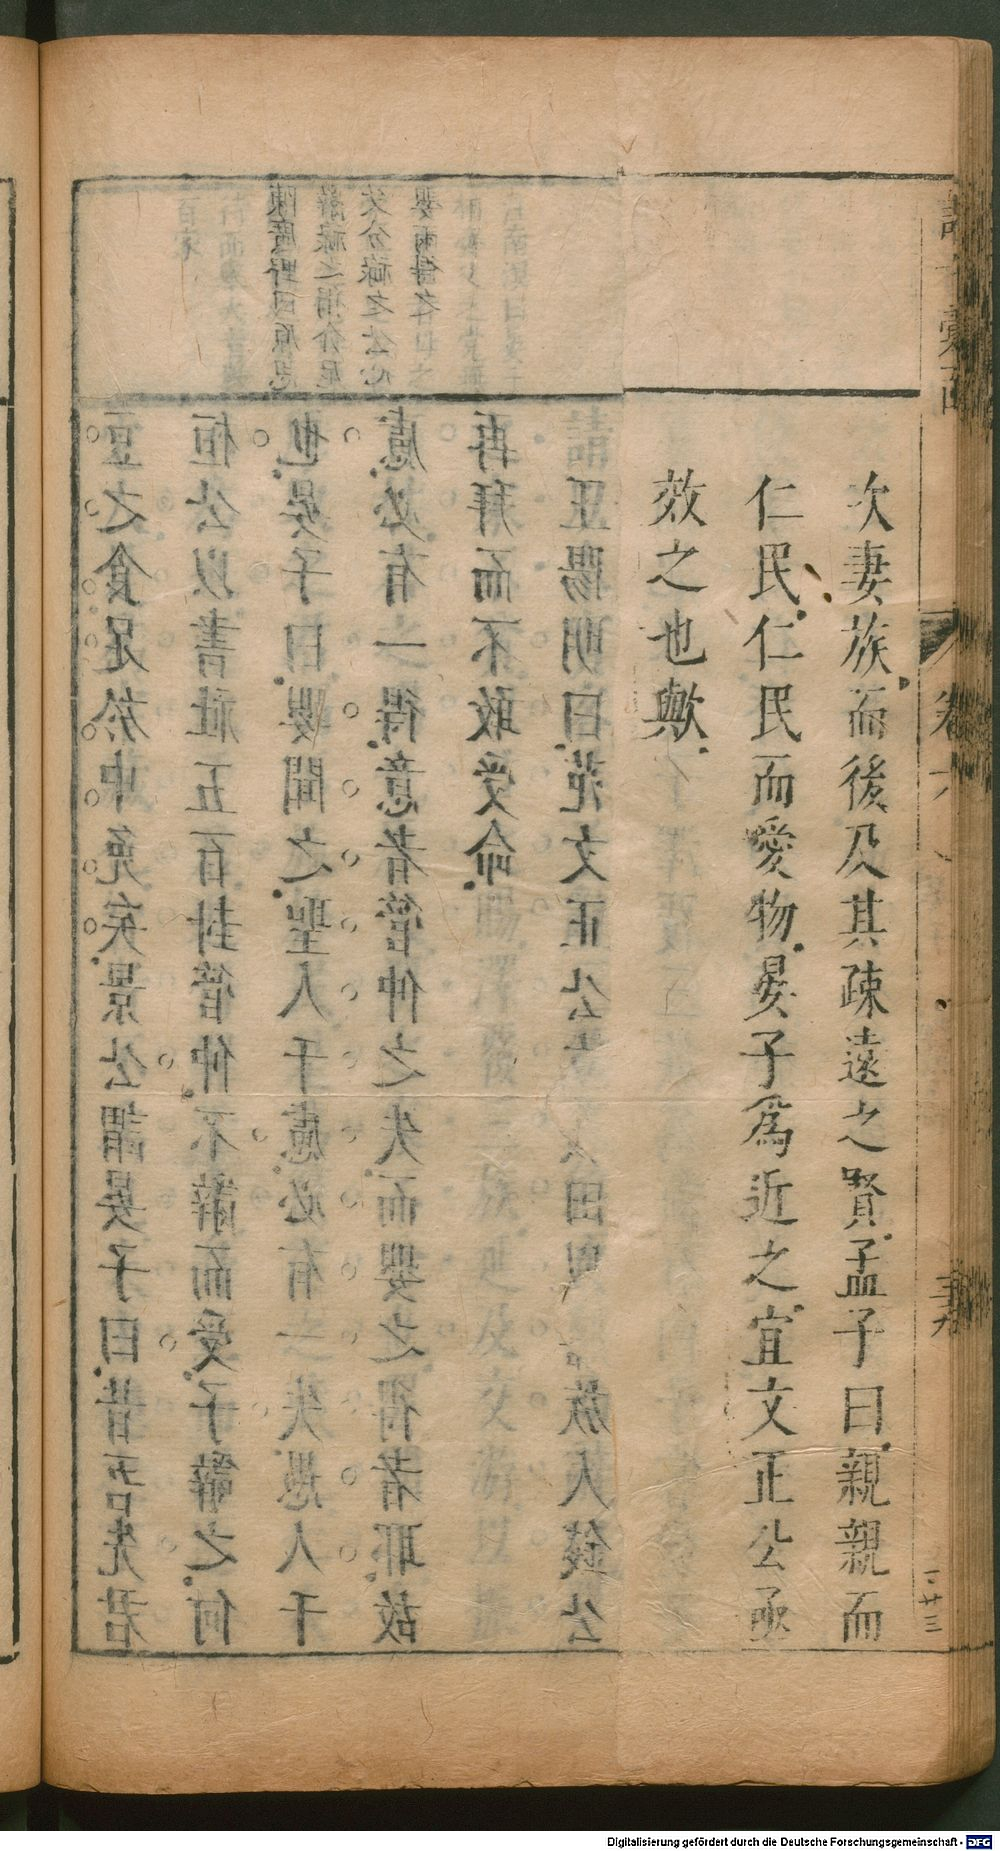 次妻族而後及其疎遠之賢孟子曰親親而
仁民仁民而愛物晏子為近之宜文正公亟
效之也歟
卷六
豆之食足於中免矣景公謂晏子曰昔吾先君
桓公以書社五百封管仲不辭而受子辭之何
也晏子曰嬰聞之聖人千慮必有一失愚人千
慮必有一得意者管仲之失而嬰之得者耶故
再拜而不敢受命
王陽明曰范文正公族人錢公
陳廣野曰原思
辭祿之狷介
矣分祿之公心
嬰兩得之
Digitalisierung gefördert durch die Deutsche Forschungsgemeinschaft - DFG